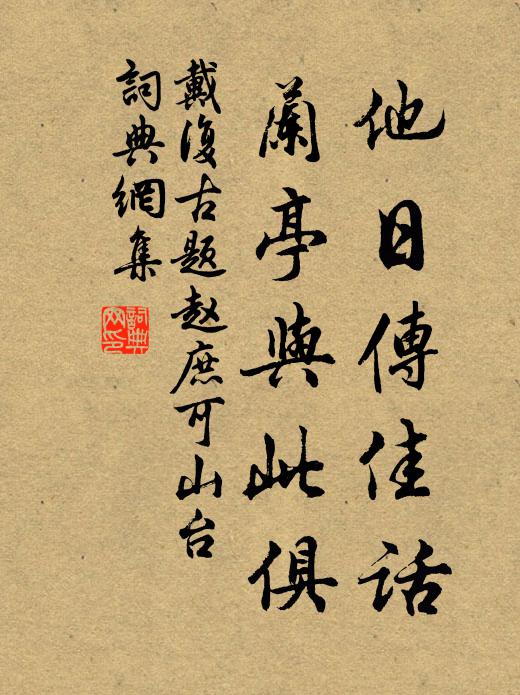 他日傳佳話
蘭亭與此俱
戴復古題赵庶可山台
詞典網集
詞典网印